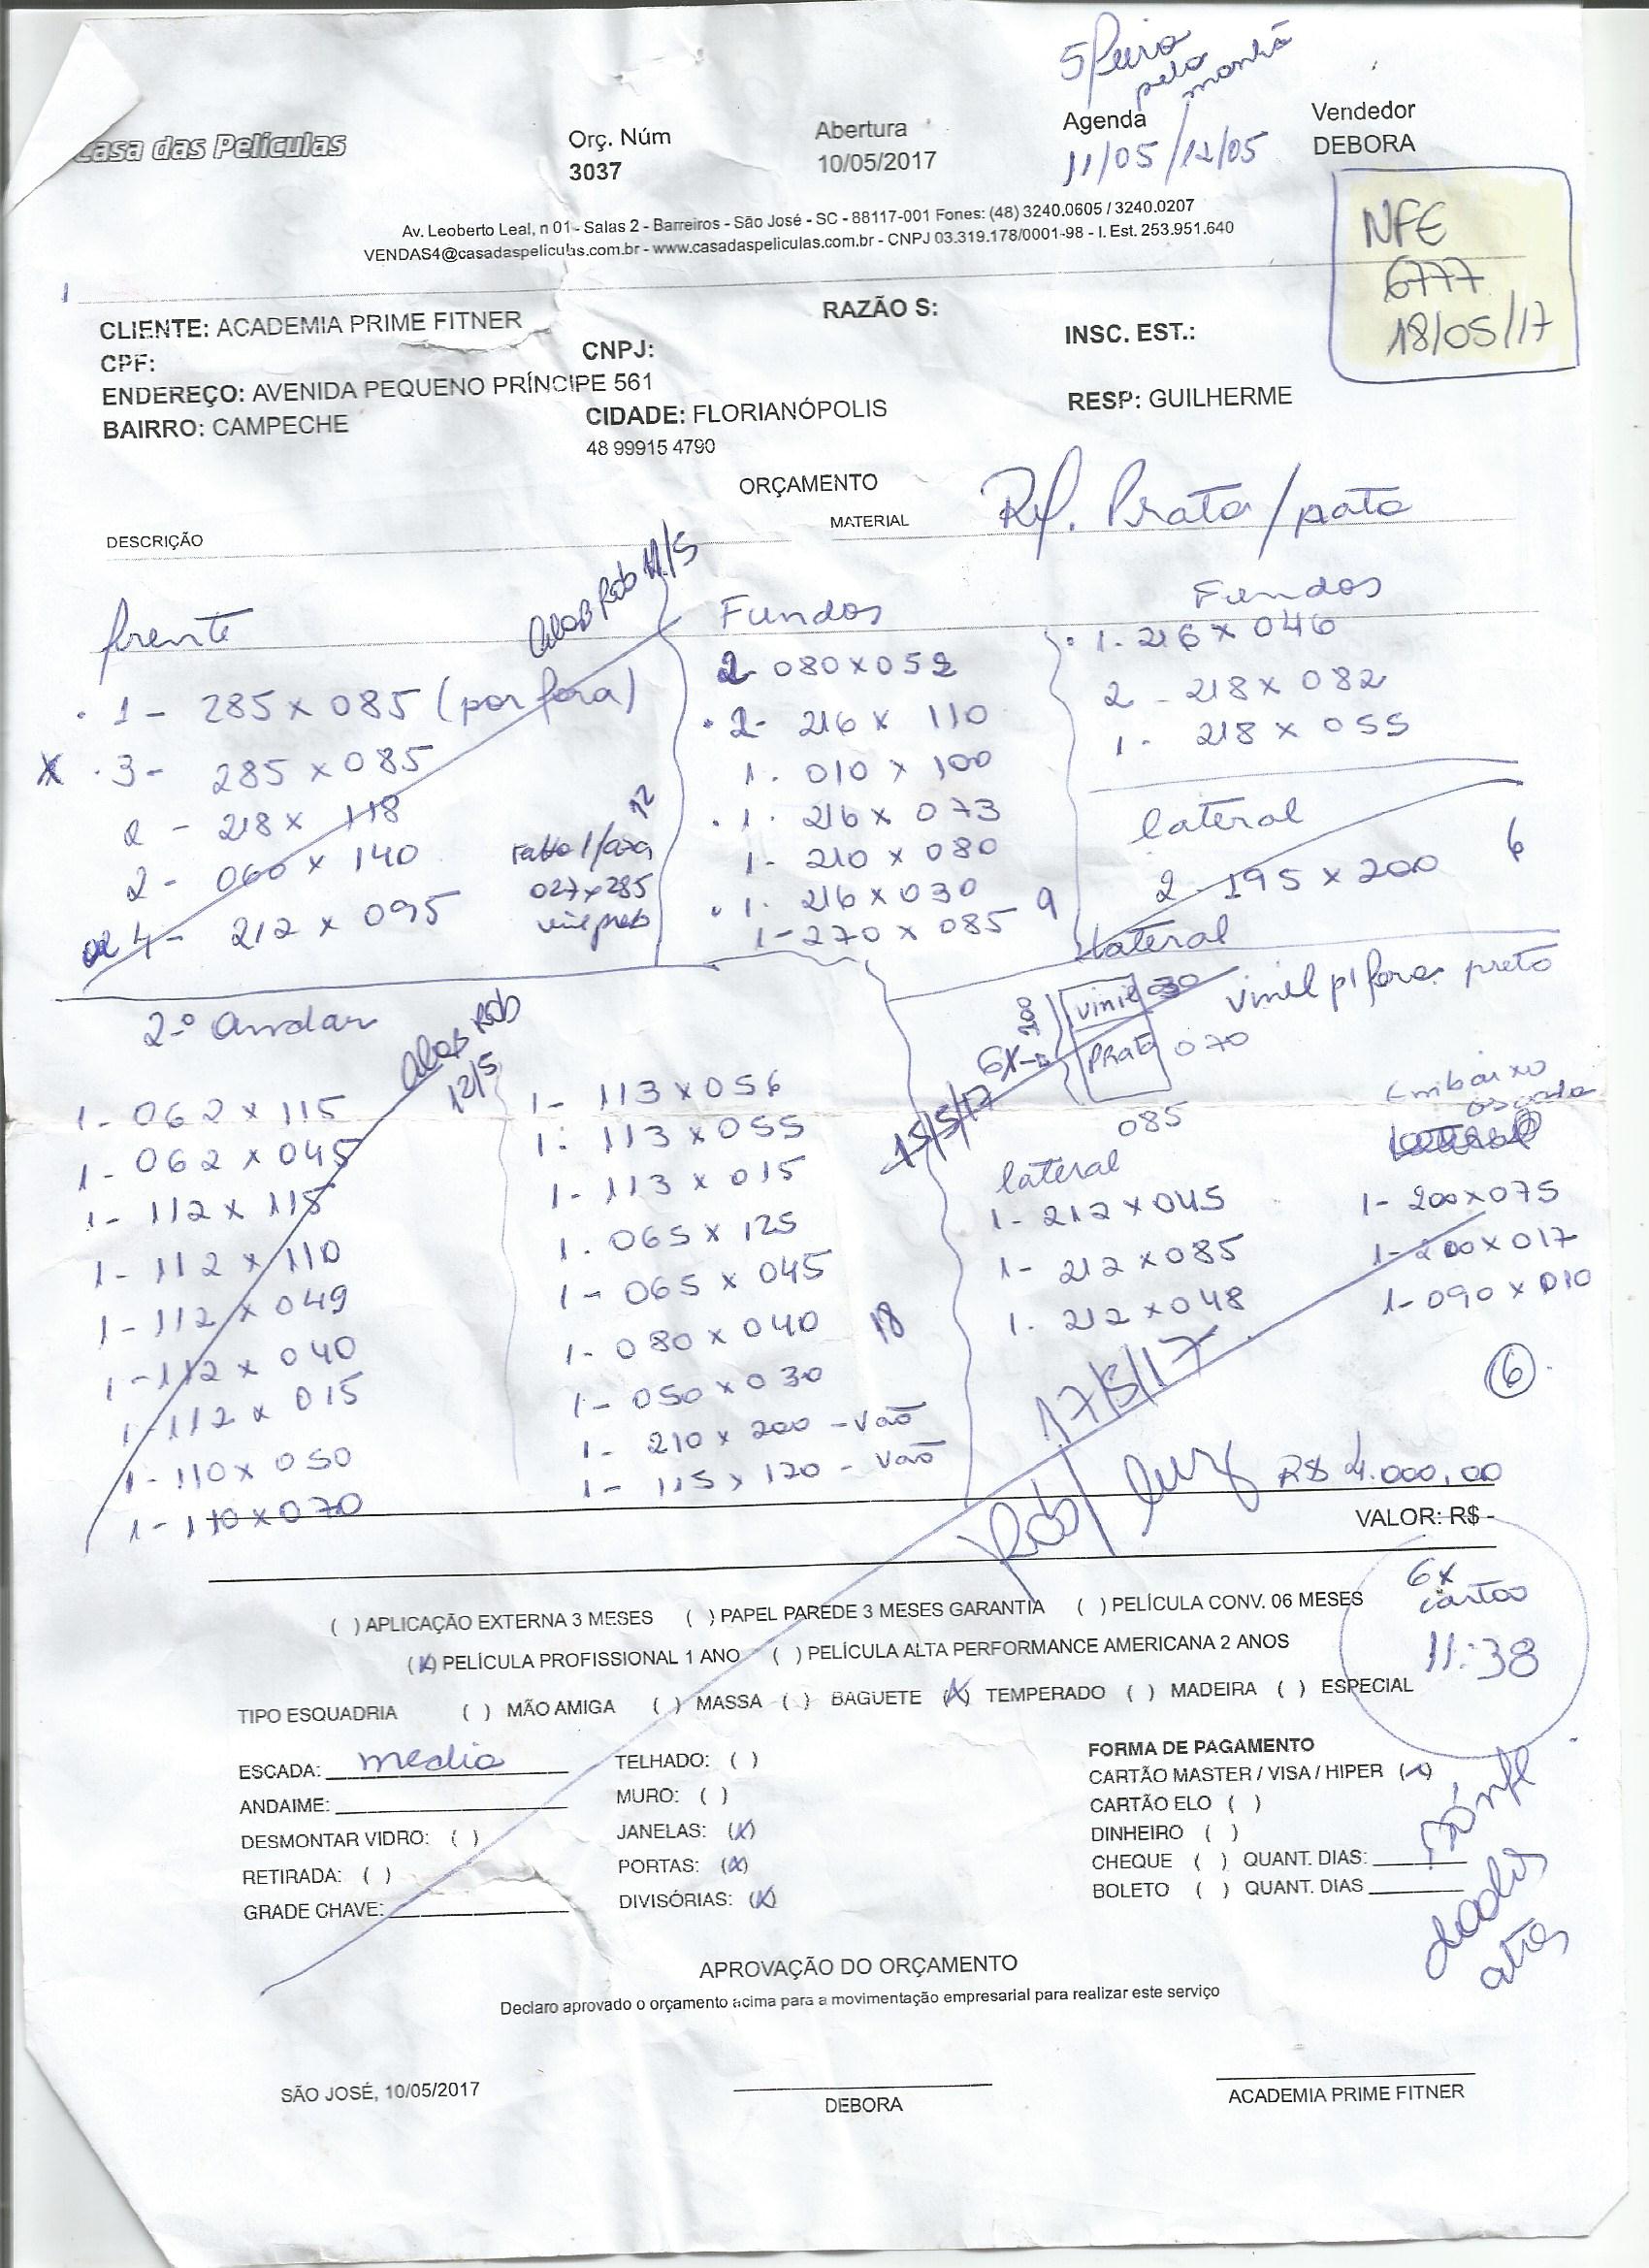 5ª feira
pela
manhã
Casa das Películas
Orç. Núm
3037
Abertura
10/05/2017
Agenda
11/05/12/05
Vendedor
DEBORA
NFE
6777
18/05/17
Av. Leoberto Leal, n 01 - Salas 2 - Barreiros - São José - SC - 88117-001 Fones: (48) 3240.0605 / 3240.0207
VENDAS4@casadaspeliculas.com.br - www.casadaspeliculas.com.br - CNPJ 03.319.178/0001-98 - I. Est. 253.951.640
CLIENTE: ACADEMIA PRIME FITNER
RAZÃO S:
CPF:
CNPJ:
INSC. EST.:
ENDEREÇO: AVENIDA PEQUENO PRÍNCIPE 561
BAIRRO: CAMPECHE
CIDADE: FLORIANÓPOLIS
RESP: GUILHERME
48 99915 4790
ORÇAMENTO
DESCRIÇÃO
MATERIAL
Rf. Prata / pata
frente
Rob 11/5
1 - 285 x 085 (por fora)
x 3 - 285 x 085
2 - 218 x 118
2 - 060 x 140
4 - 212 x 095
12
027 x 285
Fundos
2 - 080 x 052
2 - 216 x 110
1 - 010 x 100
1 - 216 x 073
1 - 210 x 080
1 - 216 x 030
1 - 270 x 085
9
Fundos
1 - 216 x 046
2 - 218 x 082
1 - 218 x 055
lateral
2 - 195 x 200
6
2º andar
Rob
12/5
1 - 062 x 115
1 - 062 x 045
1 - 112 x 115
1 - 112 x 110
1 - 112 x 049
1 - 112 x 040
1 - 112 x 015
1 - 110 x 050
1 - 110 x 070
1 - 113 x 056
1 - 113 x 055
1 - 113 x 015
1 - 065 x 125
1 - 065 x 045
1 - 080 x 040
1 - 050 x 030
1 - 210 x 200 - vão
1 - 115 x 120 - vão
18
lateral
vinil 030
vinil p/ fora preto
6x
Prata 070
085
15/5/17
lateral
1 - 212 x 045
1 - 212 x 085
1 - 212 x 048
Embaixo
escada
1 - 200 x 075
1 - 200 x 017
1 - 090 x 010
6
17/5/17
Rob / Luiz
R$ 4.000,00
VALOR: R$ -
6x
cartão
11:38
( ) APLICAÇÃO EXTERNA 3 MESES ( ) PAPEL PAREDE 3 MESES GARANTIA ( ) PELÍCULA CONV. 06 MESES
(X) PELÍCULA PROFISSIONAL 1 ANO ( ) PELÍCULA ALTA PERFORMANCE AMERICANA 2 ANOS
TIPO ESQUADRIA ( ) MÃO AMIGA ( ) MASSA ( ) BAGUETE (X) TEMPERADO ( ) MADEIRA ( ) ESPECIAL
ESCADA: media
ANDAIME:
DESMONTAR VIDRO: ( )
RETIRADA: ( )
GRADE CHAVE:
TELHADO: ( )
MURO: ( )
JANELAS: (X)
PORTAS: (X)
DIVISÓRIAS: (X)
FORMA DE PAGAMENTO
CARTÃO MASTER / VISA / HIPER (x)
CARTÃO ELO ( )
DINHEIRO ( )
CHEQUE ( ) QUANT. DIAS:
BOLETO ( ) QUANT. DIAS
dados
atrás
APROVAÇÃO DO ORÇAMENTO
Declaro aprovado o orçamento acima para a movimentação empresarial para realizar este serviço
SÃO JOSÉ, 10/05/2017
DEBORA
ACADEMIA PRIME FITNER